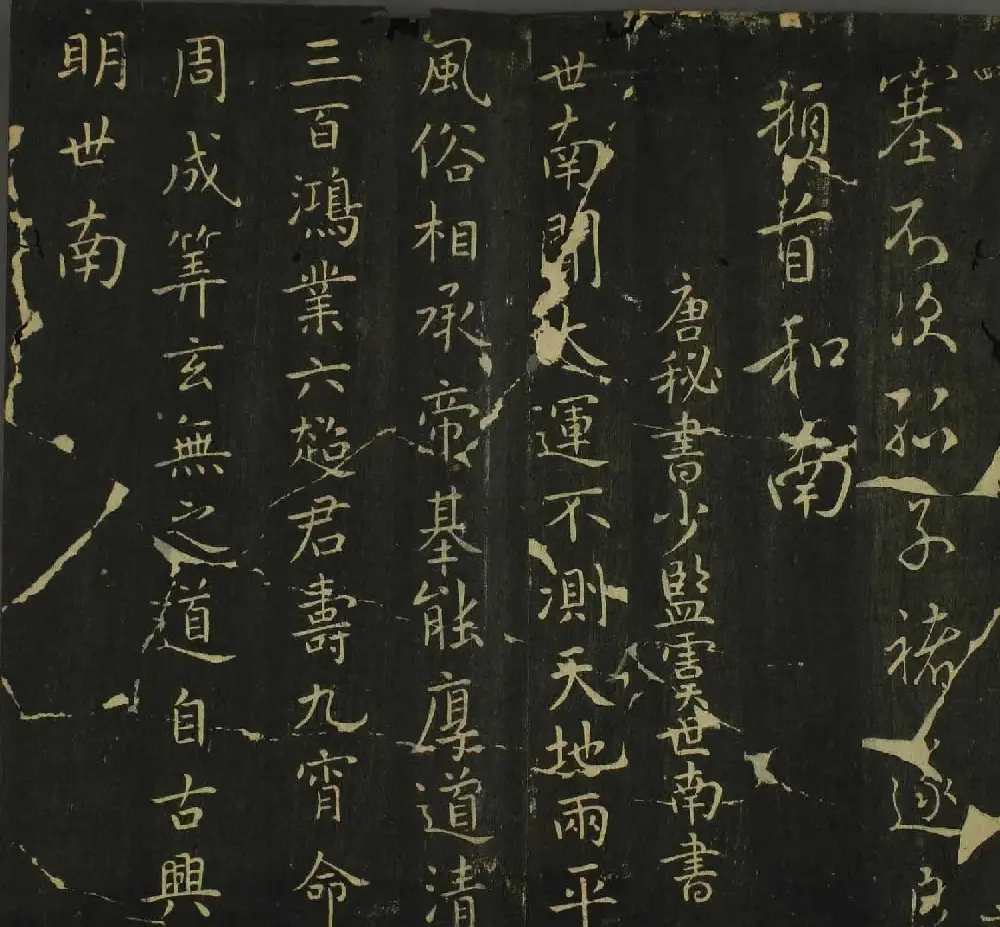 塞不次孤子褚遂良
頓首和南
唐秘書少監虞世南書
世南聞大運不測天地兩平
風俗相承帝基能厚道清
三百鴻業六超君壽九霄命
周成筭玄無之道自古興
明世南